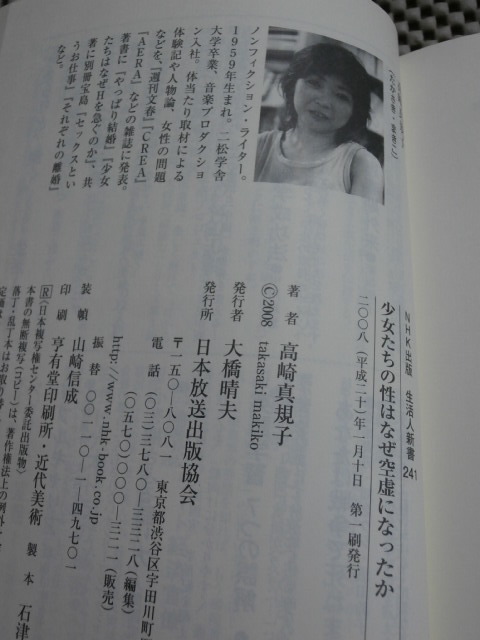 高崎真規子
(たかさき・まきこ)
ノンフィクション・ライター。
1959年生まれ。二松学舎
大学卒業、音楽プロダクショ
ン入社。体当たり取材による
体験記や人物論、女性の問題
などを、『週刊文春』『CREA』
『AERA』などの雑誌に発表。
著書に『やっぱり結婚』『少女
たちはなぜHを急ぐのか』、共
著に別冊宝島『セックスとい
うお仕事』『それぞれの離婚』
など。
NHK出版 生活人新書 241
少女たちの性はなぜ空虚になったか
二〇〇八(平成二十)年一月十日 第一刷発行
著者 高崎真規子
©2008 takasaki makiko
発行者 大橋晴夫
発行所 日本放送出版協会
〒一五〇-八〇八一 東京都渋谷区宇田川町
電話 (〇三)三七八〇-三三二八(編集)
(〇五七〇)〇〇〇-三二一(販売)
http://www.nhk-book.co.jp
振替 〇〇一一〇-一-四九七〇一
装幀 山崎信成
印刷 亨有堂印刷所・近代美術 製本 石津
R〈日本複写権センター委託出版物〉
本書の無断複写(コピー)は、著作権法上の例外
落丁・乱丁本はお取り替え
定価は